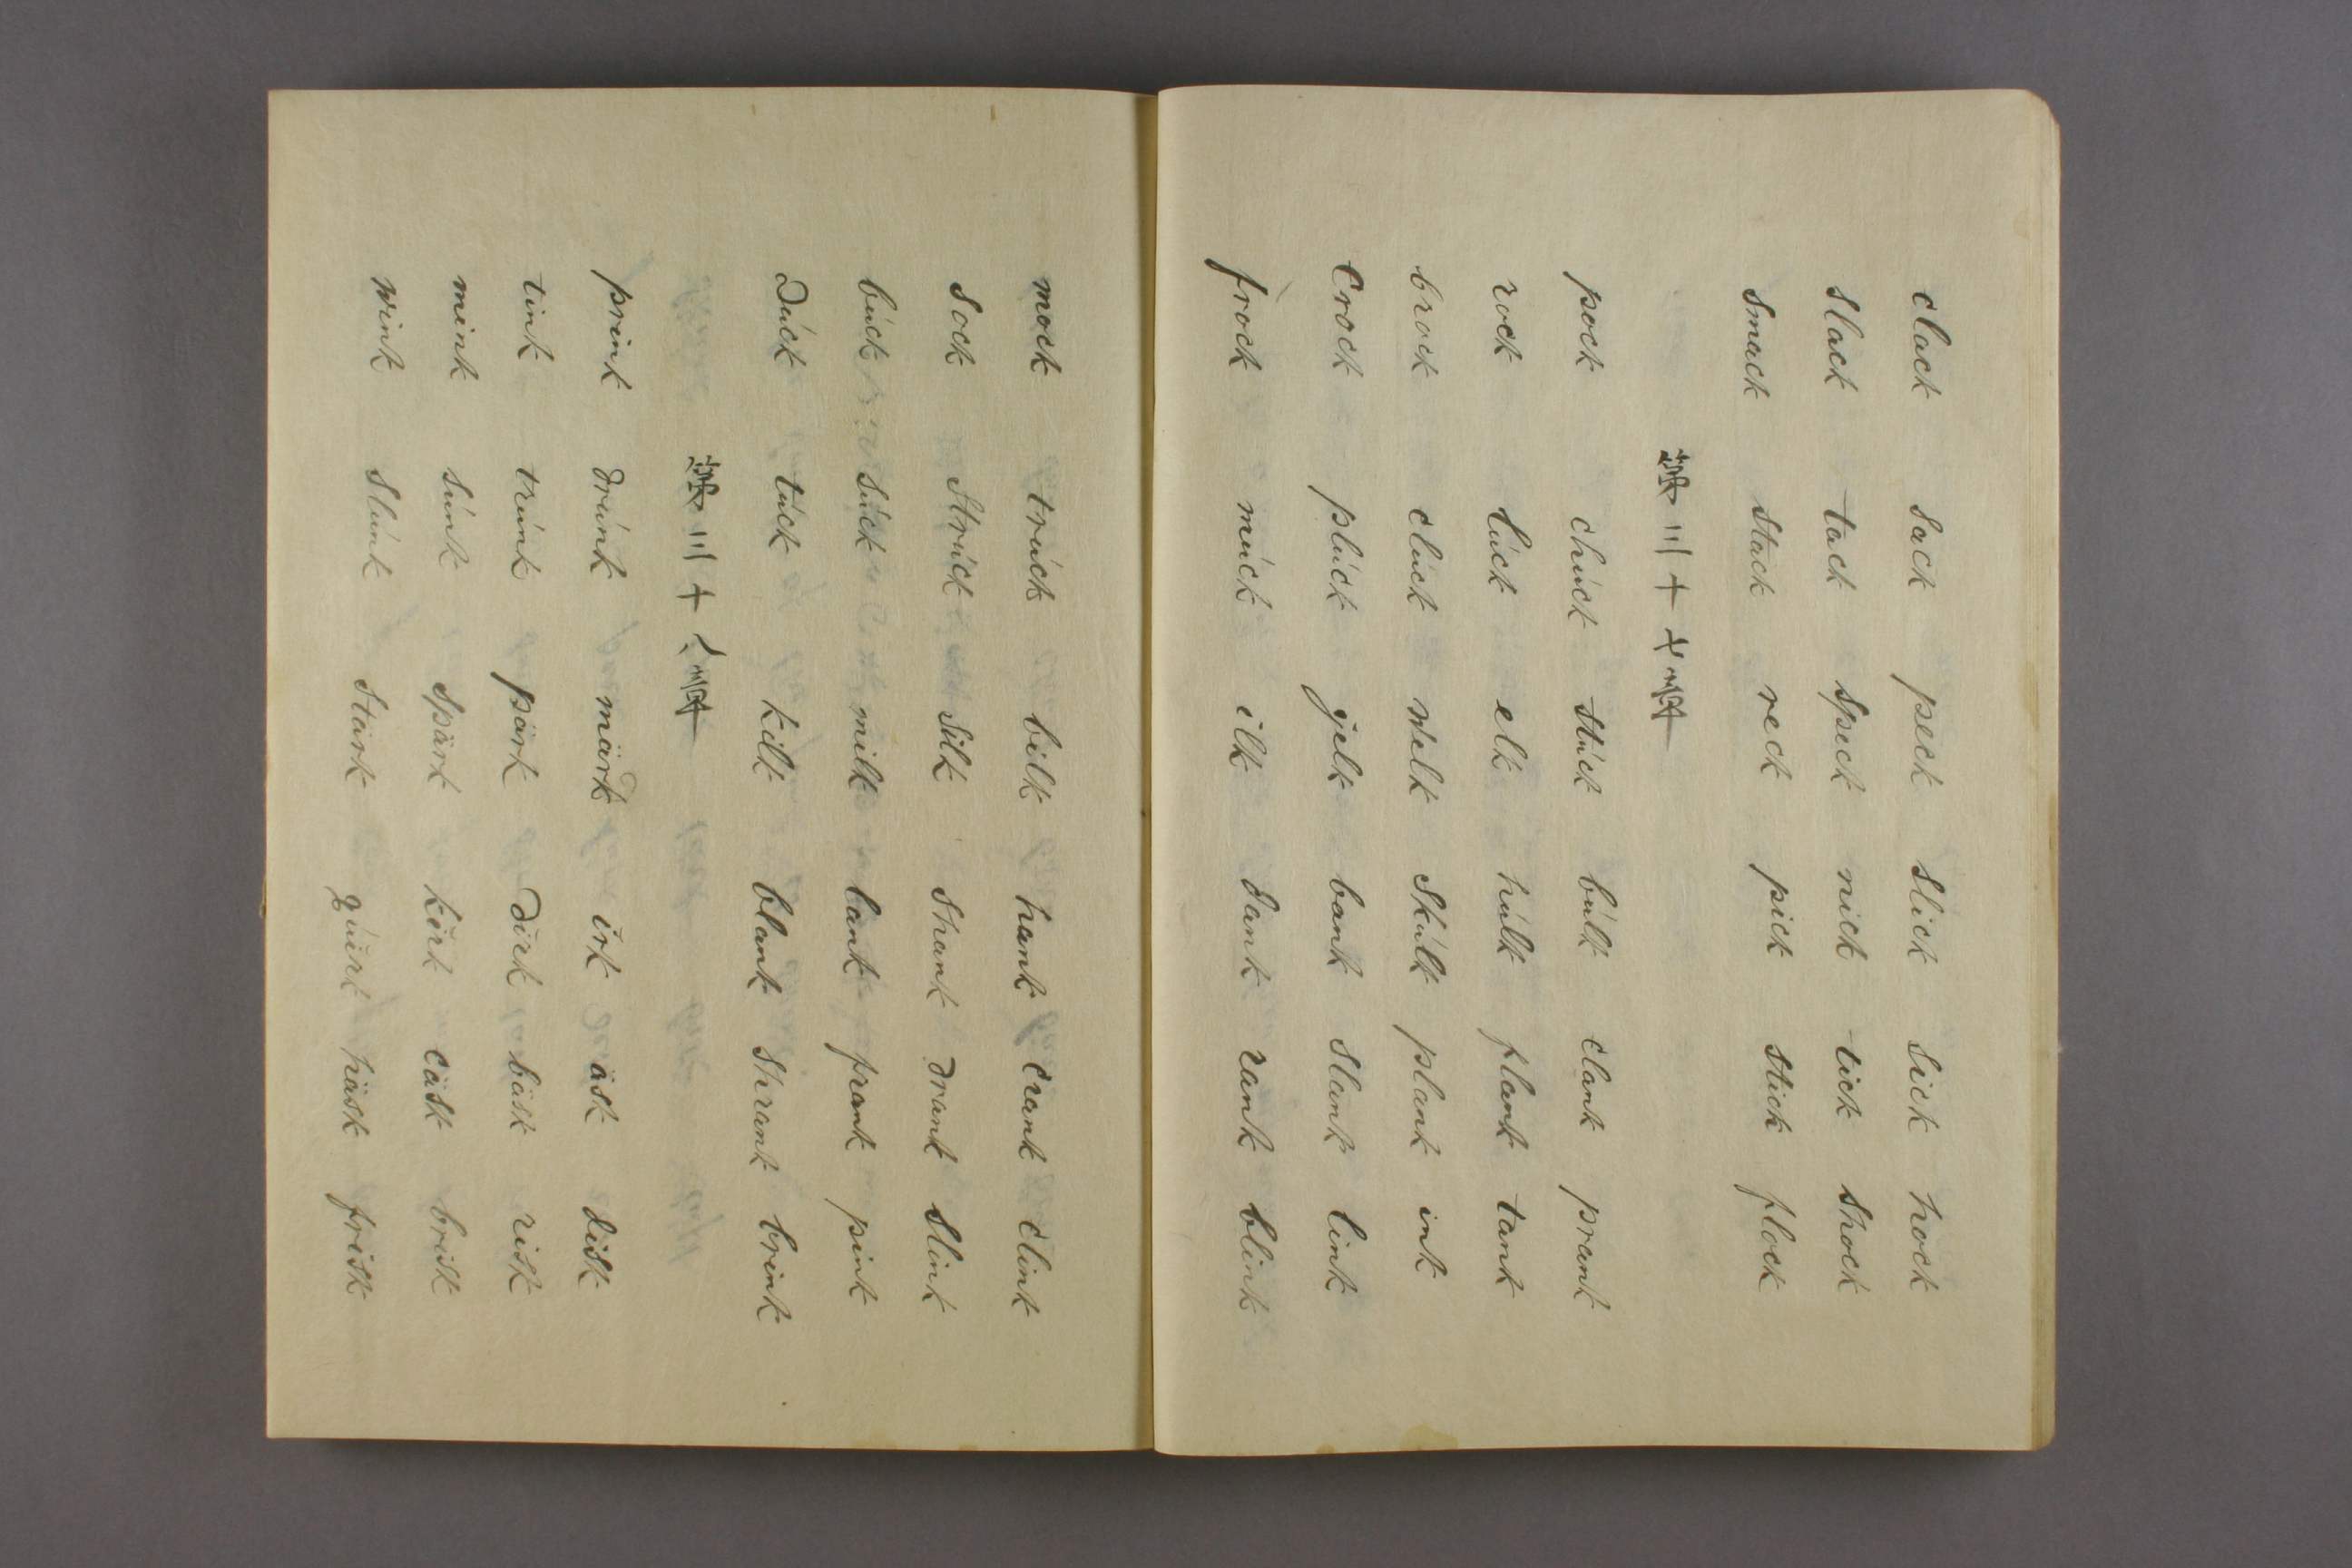 clack sack peck slick sick hock
slack tack speck nick tick shock
smack stack reck pick stick flock
第三十七課
pock chúck stúck búlk clank prank
rock lúck elk húlk flank tank
brock clúck welk skúlk plank ink
crock plúck yelk bank slank link
frock múck ilk dank rank blink
mock trúck bilk hank crank clink
sock strúck silk shank drank slink
búck súck milk lank frank pink
dúck túck kilk blank shrank brink
第三十八課
prink drúnk märk ïrk äsk disk
tink trúnk pärk dïrk bäsk risk
mink súnk spärk kïrk cäsk brisk
wink slúnk stärk qúïrk häsk frisk